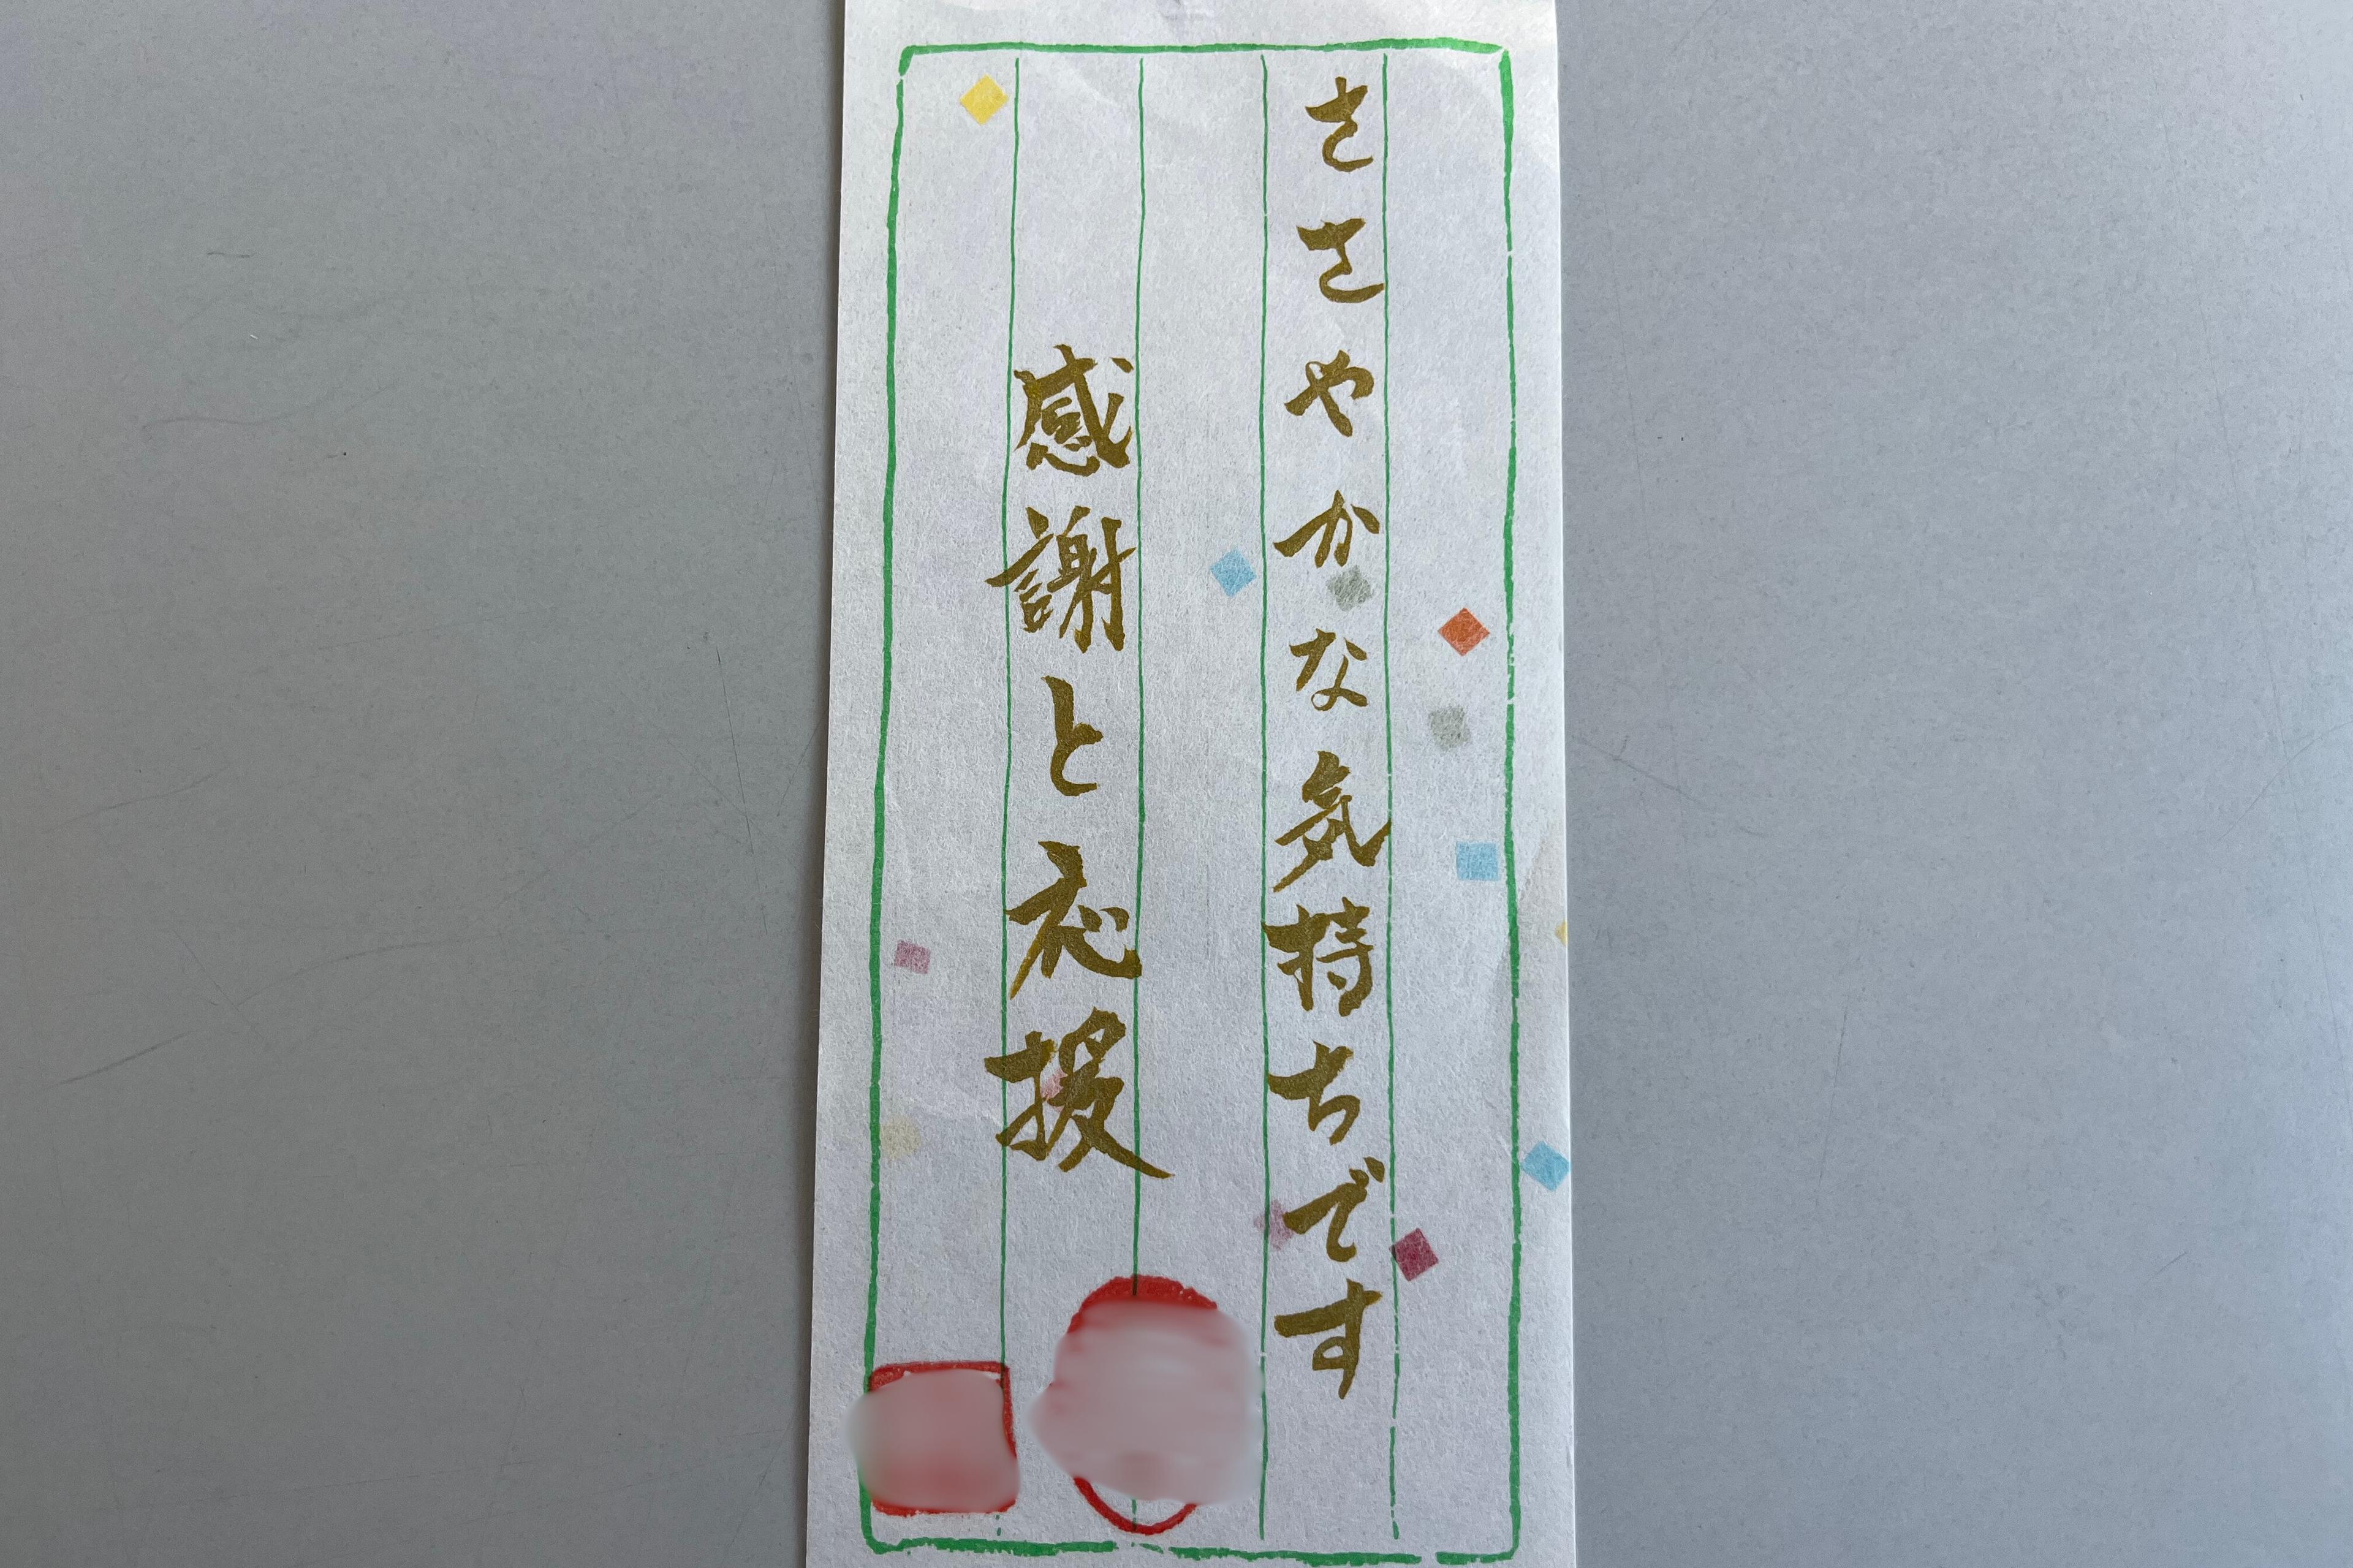 ささやかな気持ちです
感謝と応援